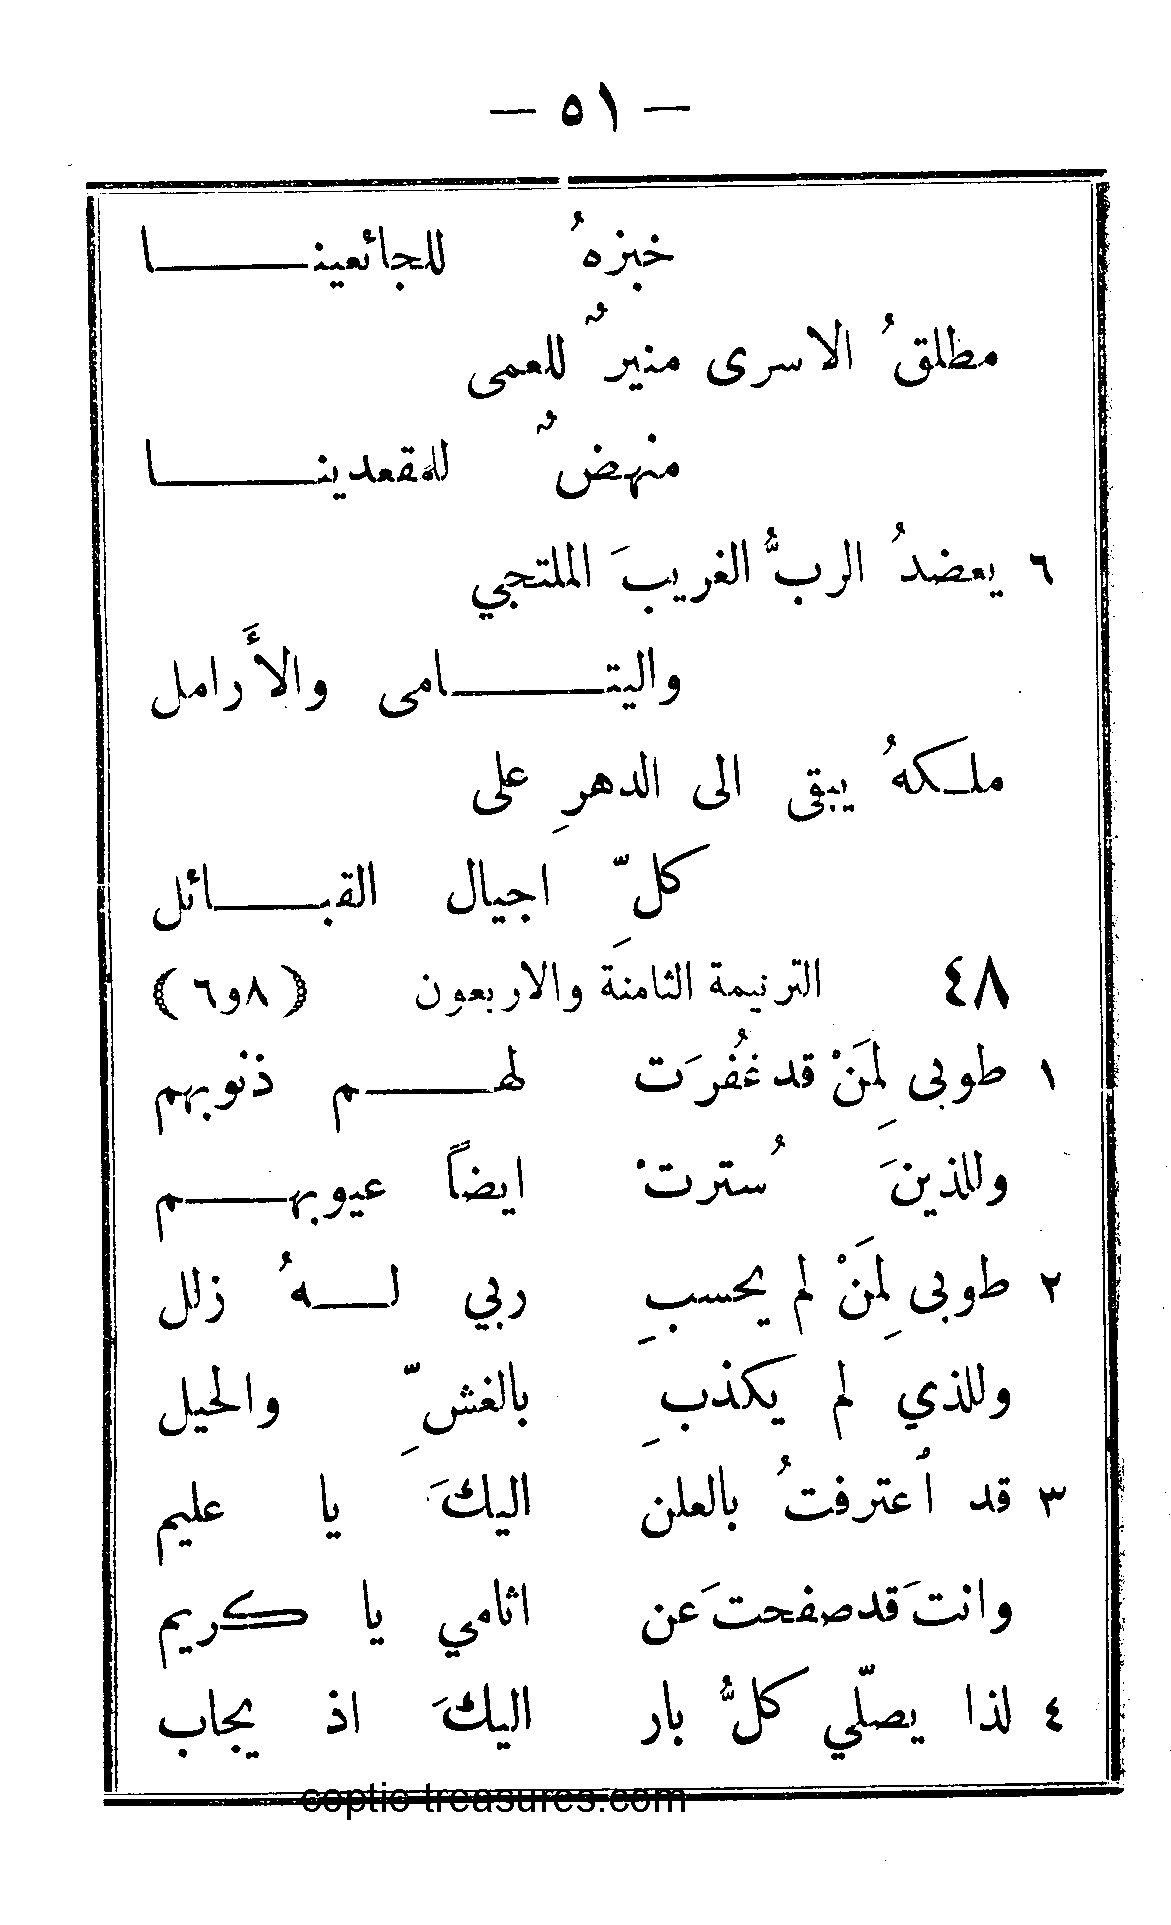 — ٥١ —
خبزهُ للجائعينـــــا
مطلقُ الاسرى منيرٌ للعمى
منهضٌ للمقعدينـــــا
٦ يعضدُ الربُّ الغريبَ الملتجي
واليتـــــامى والأَرامل
ملـكهُ يبقى الى الدهرِ على
كلّ اجيال القبـــائل
٤٨ الترنيمة الثامنَة والاربعون (٨و٦)
١ طوبى لِمَنْ قد غُفُرَت لهــــم ذنوبهم
وللذينَ سُترتْ ايضاً عيوبهـــم
٢ طوبى لِمَنْ لم يحسبِ ربي لـــهُ زلل
وللذي لم يكذبِ بالغشِّ والحيل
٣ قد ٱعترفتُ بالعلن اليكَ يا عليم
وانتَ قد صفحتَ عن اثامي يا كريم
٤ لذا يصلّي كلُّ بار اليكَ اذ يجاب
coptic-treasures.com